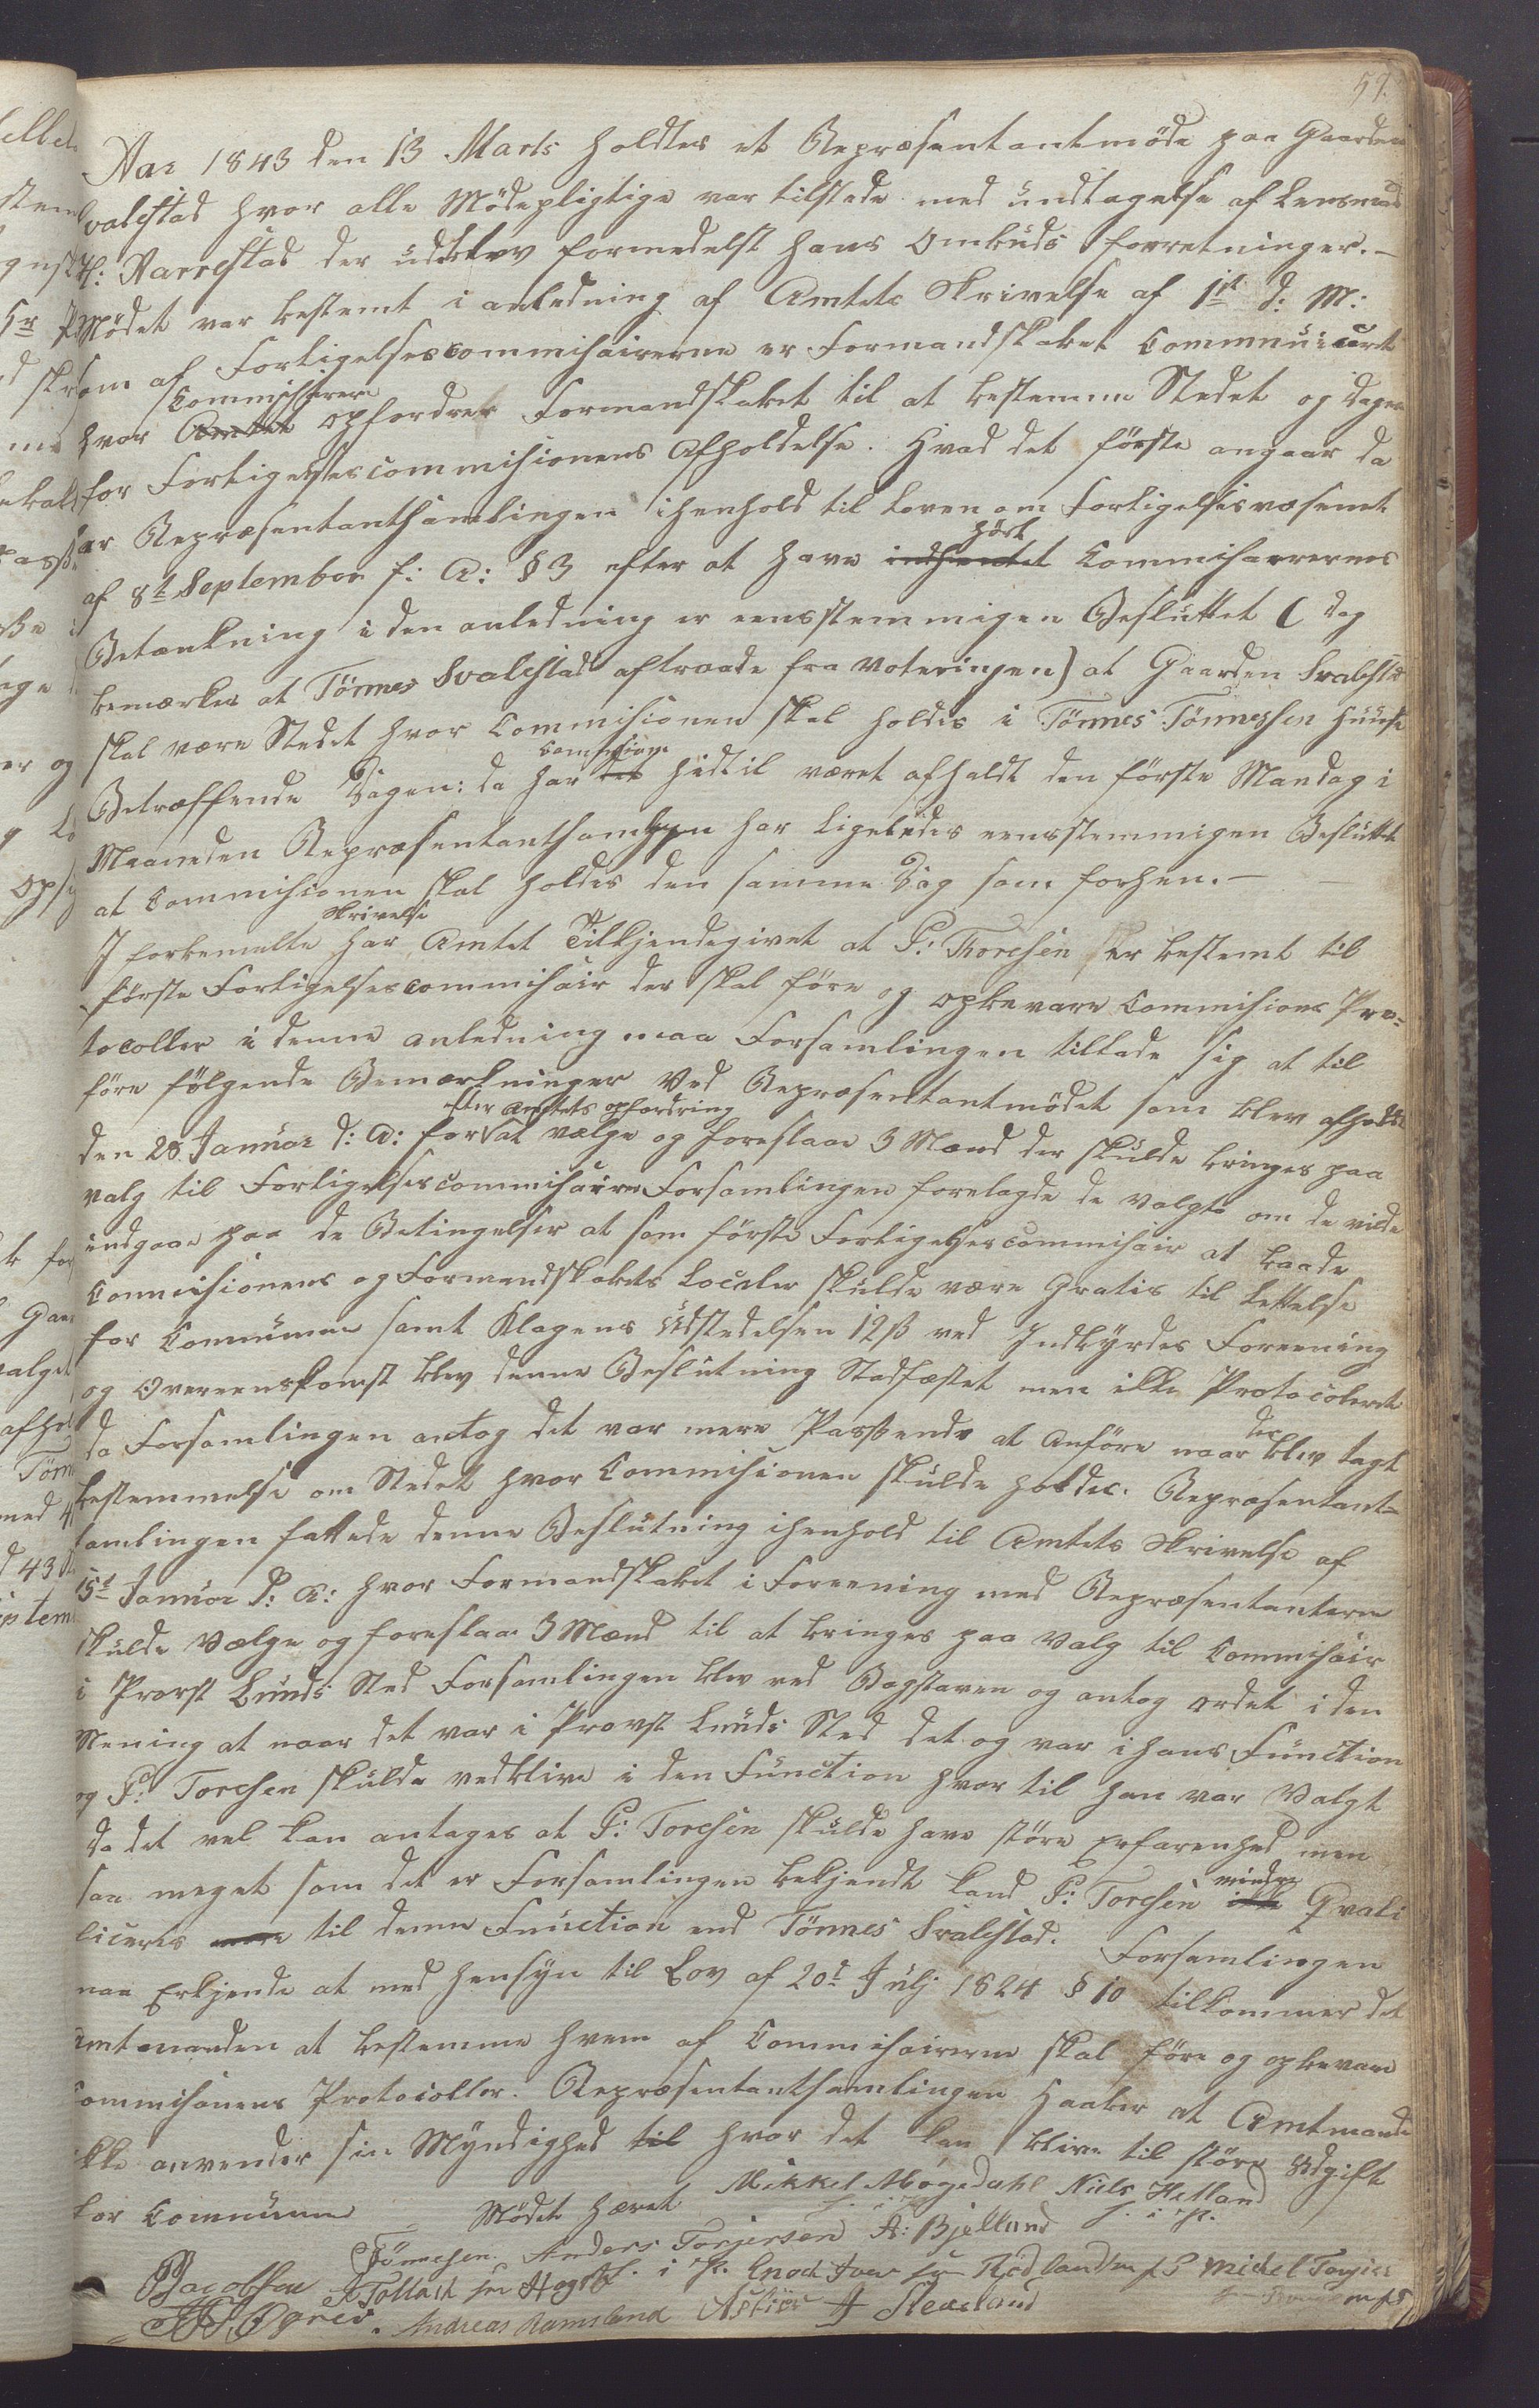 57.
Aar 1843 den 13 Marts holdtes et Repræsentantmöde paa Gaarden
Svalestad hvor alle Mödepligtige var tilstede med undtagelse af Lensmand
H: Varrestad der udeblev formedelst hans Ombuds forretninger. –
Mödet var bestemt i anledning af Amtets Skrivelse af 1st d: M:
som af Forligelsescommihsairerne er Formandskabet Communicert
hvor Commihsairerne opfordrer Formandskabet til at bestemme Stedet og Dagen
for Forligelsescommihsionens Afholdelse. Hvad det förste angaar da
er Repræsentantsamlingen ihenhold til Loven om Forligelsesvæsenet
af 8de September f: A: § 3 efter at have hört Commihsairernes
Betænkning i den anledning er eensstemmigen Besluttet (dog
bemærkes at Tönnes Svalestad aftraade fra Voteringen) at Gaarden Svalestad
skal være Stedet hvor Commihsionen skal holdes i Tönnes Tönnessen Huuse
Betræffende Dagen: da har Commihsionen hidtil været afholdt den förste Mandag i
Maaneden Repræsentantsamlingen har ligeledes eensstemmigen Besluttet
at Commihsionen skal holdes den samme Dag som forhen. –
I forbemelte Skrivelse har Amtet Tilkjendegivet at P: Thorehsen er bestemt til
förste Forligelsescommihsair der skal före og opbevare Commihsions Pro-
tocoller i denne anledning maa Forsamlingen tillade sig at til
före fölgende Bemærkninger Ved Repræsentantmödet som blev afholdt
den 28 Januar d: A: for efter Amtets opfordring at vælge og foreslaae 3 Mænd der skulde bringes paa
valg til Forligelsescommihsairer Forsamlingen forelagde de valgte om de vilde
indgaae paa de Betingelser at som förste Forligelsescommihsair at baade
Commihsionens og Formandskabets Localer skulde være Gratis til lettelse
for Communen samt Klagens Udstedelsen 12 ß ved Indbyrdes Foreening
og Overeenskomst blev denne Beslutning Stadfæstet men ikke Protocoleret
da Forsamlingen antog det var mere Passende at Anföre naar der blev tagt
bestemmelse om Stedet hvor Commihsionen skulde holdes. Repræsentant-
samlingen fattede denne Beslutning ihenhold til Amtets Skrivelse af
15de Januar d: A: hvor Formandskabet i Foreening med Repræsentanterne
skulde Vælge og foreslaa 3 Mænd til at bringes paa Valg til Commihsair
i Provst Lunds Sted Forsamlingen blev ved Bogstaven og antog ordet i den
Mening at naar det var i Provst Lunds Sted det og var i hans Function
og P: Torehsen skulde vedblive i den Function hvor til han var Valgt
da det vel kan antages at P: Torehsen skulde have större Erfarenhed men
saa meget som det er Forsamlingen bekjendt kand P: Torehsen mindre Qvali
ficeres til denne Function end Tönnes Svalestad. Forsamlingen
maa Erkjende at med hensyn til Lov af 20de Julj 1824 § 10 tilkommer det
Amtmanden at bestemme hvem af Commihsairerne skal före og opbevare
Commihsionens Protocoller. Repræsentantsamlingen Haaber at Amtmanden
ikke anvender sin Myndighed hvor det kan blive til större Udgift
for Communen Mödet hævet Mikkel Mögedahl Niels Hetland
Tönnesen Anders Torjersen A: Bjelland
Jacobsen Tollach Sen Hegre Enoch Ivers Sen Rödland m.f.P Michel Torjies
Andreas Ramsland Stensland